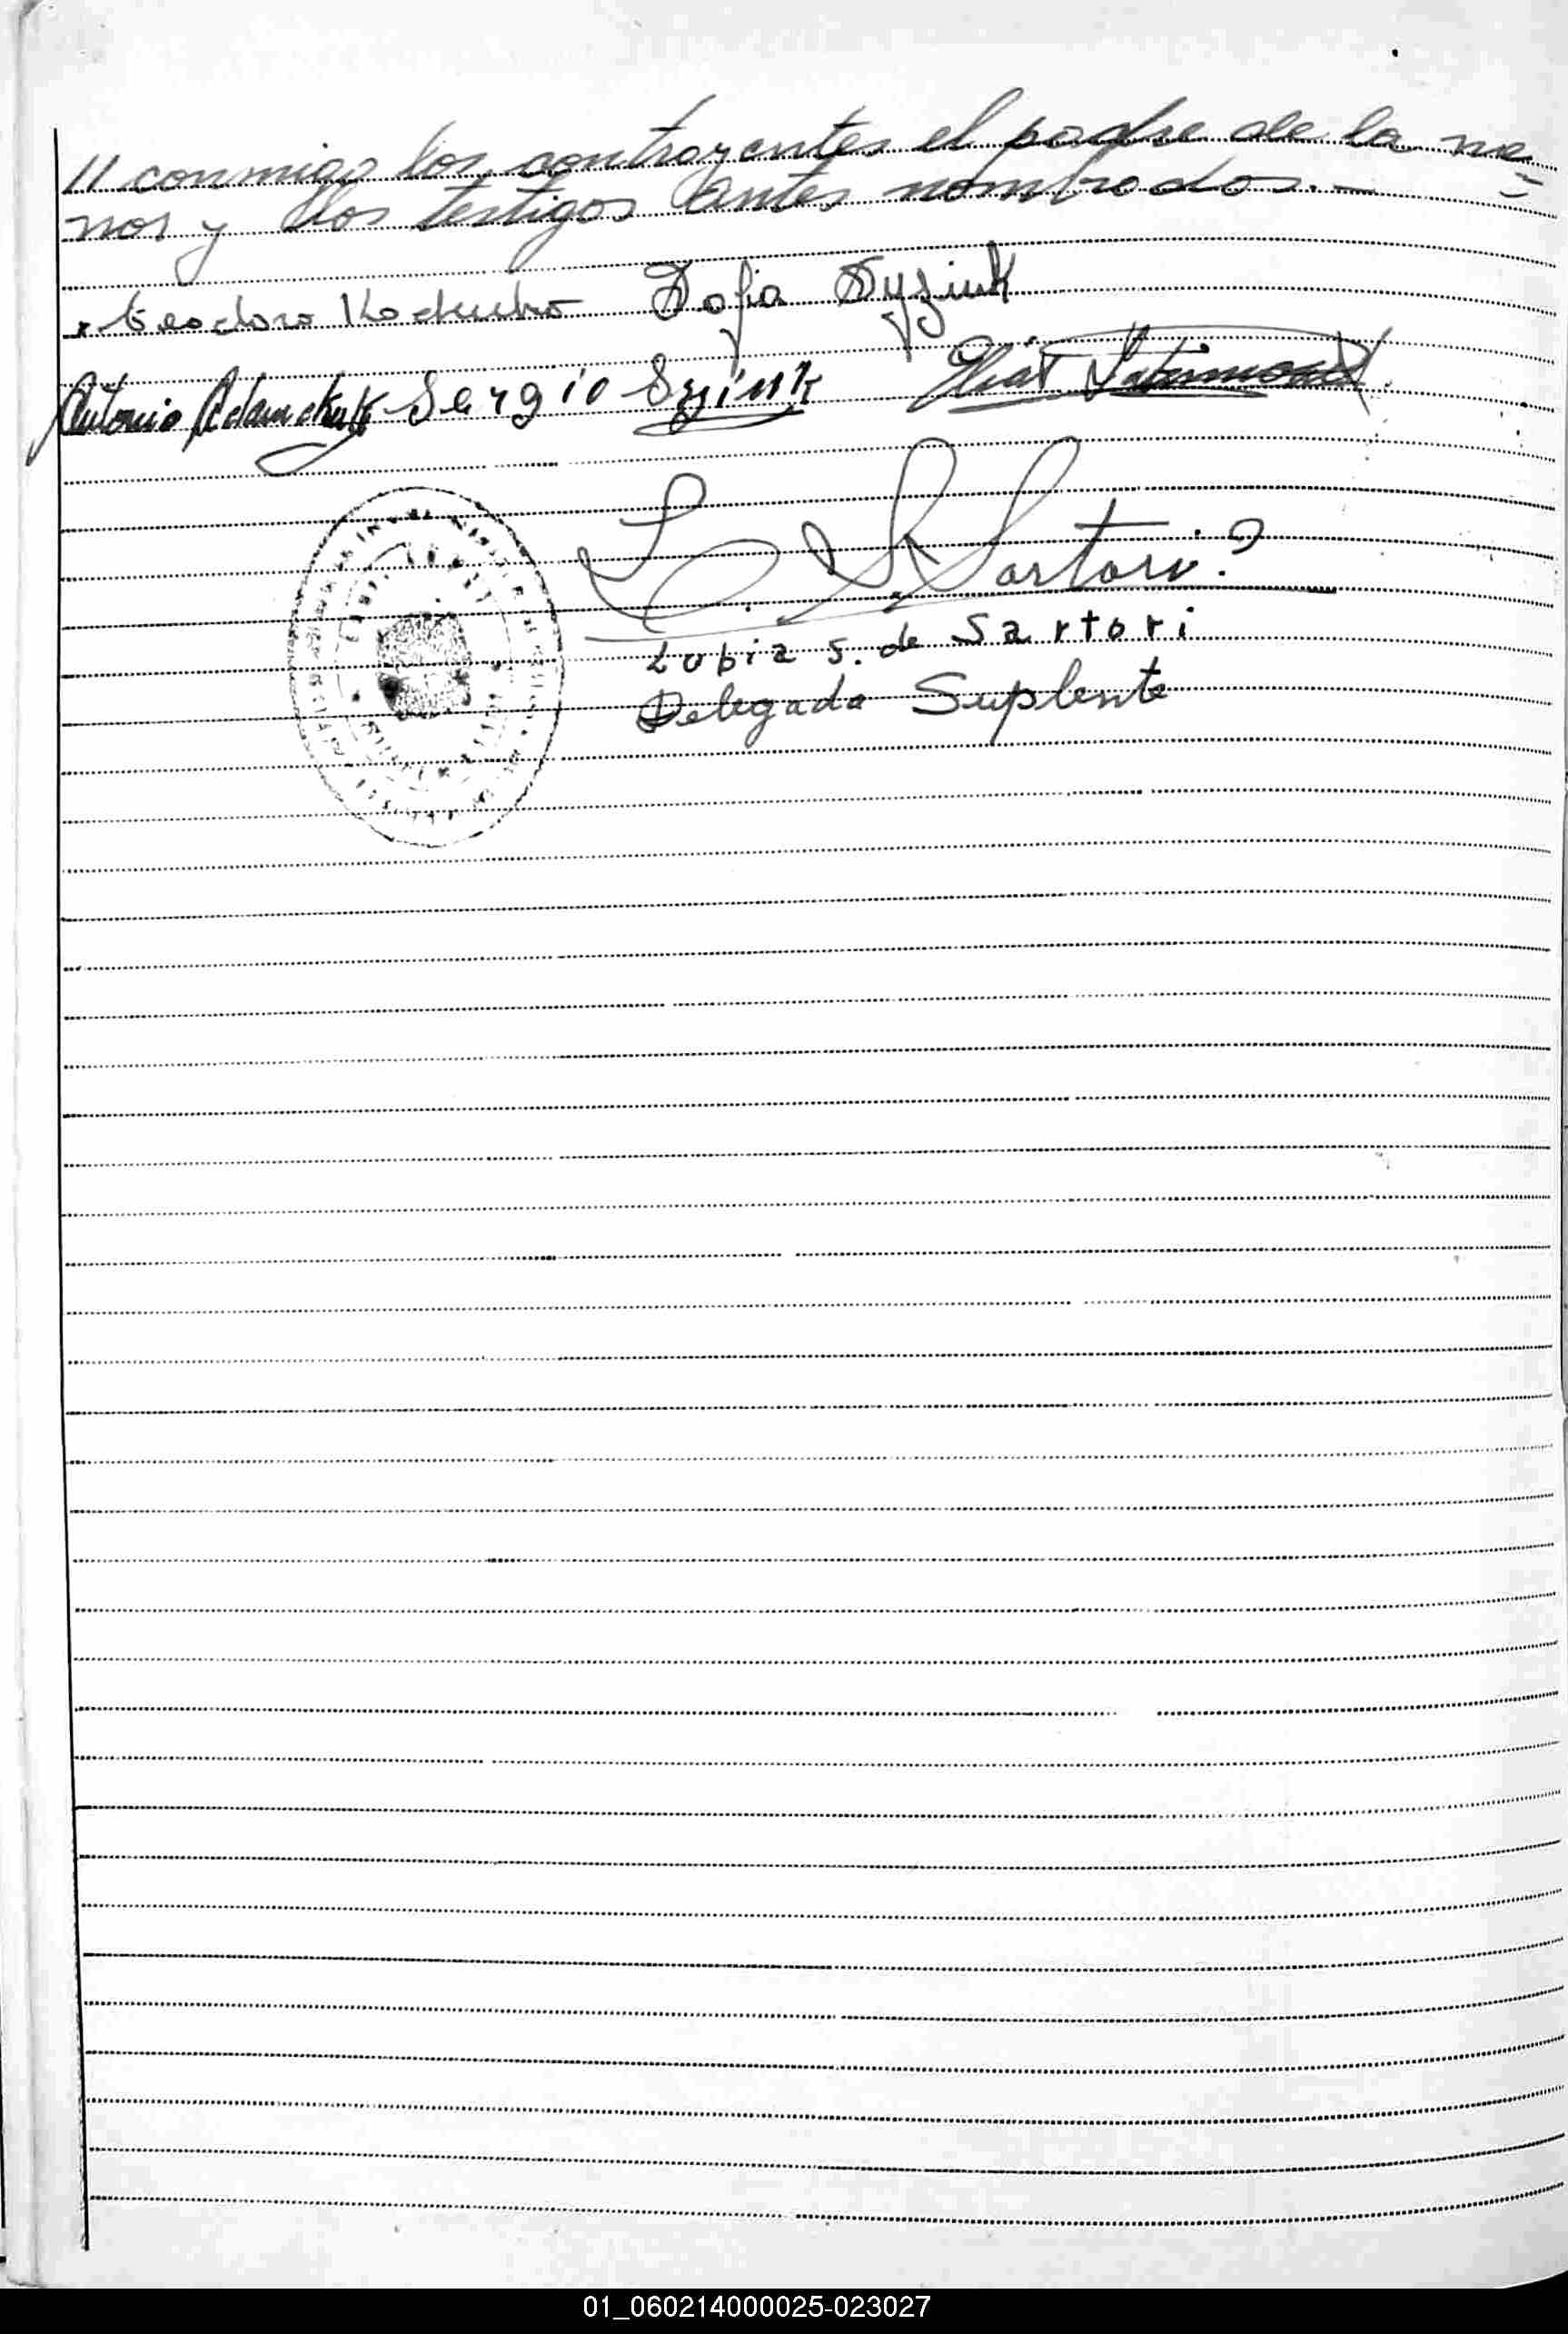 // conmigo los contrayentes el padre de la me=
nor y los testigos antes nombrados.-
Teodoro Sofia
Antonio Adamchuk Sergio Syziuk
L. S. Sartori
Lubia S. de Sartori
Delegada Suplente
01_060214000025-023027